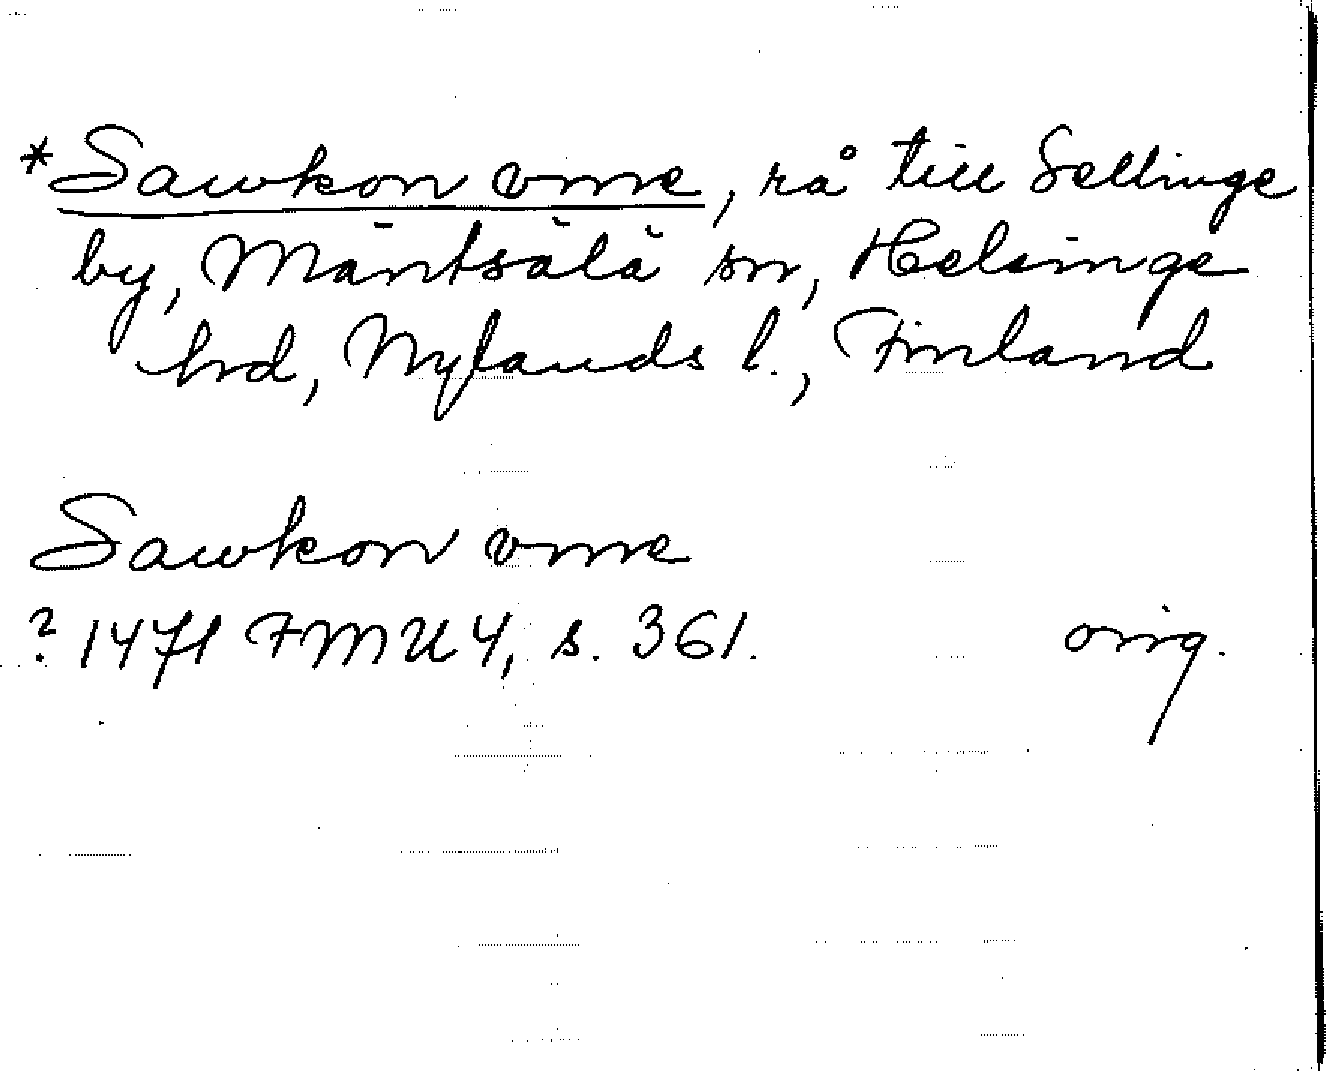 *Sawkon vme, rå till Sellinge
by, Mäntsälä sn, Helsinge
hrd, Nylands l., Finland
Sawkon vme
? 1471 FMU 4, s. 361. orig.